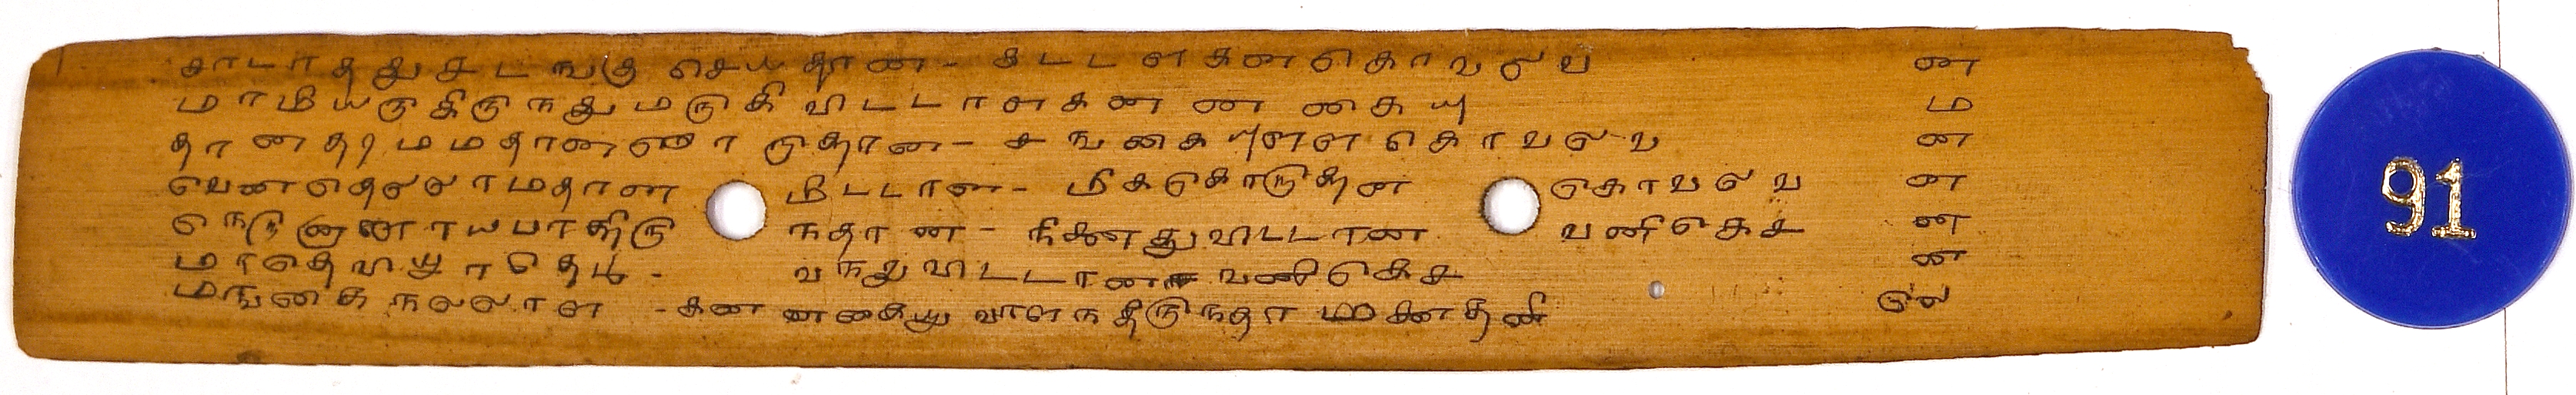 சாடாதது சடஙகு செயதான - கடடளகனகொவலவ ன
மாமியருகிருநது மருகி விடடாளகன ன கையு ம
தானதரமமதானஞொருதான - சஙகையுளளகொவலவ ன
வெனதெலலாமதான மீடடான - மிககொருதன கொவலவ ன
நெருஞனாயபாதிரு நதான - நீககிதுவிடடான வனிகெச ன
மாதெவியூாதெடி - வநதுவிடடான வணிகெச ன
மஙகைநலலாள - கன னகையுவாளநதிருநதா மகனதனி லெ
91